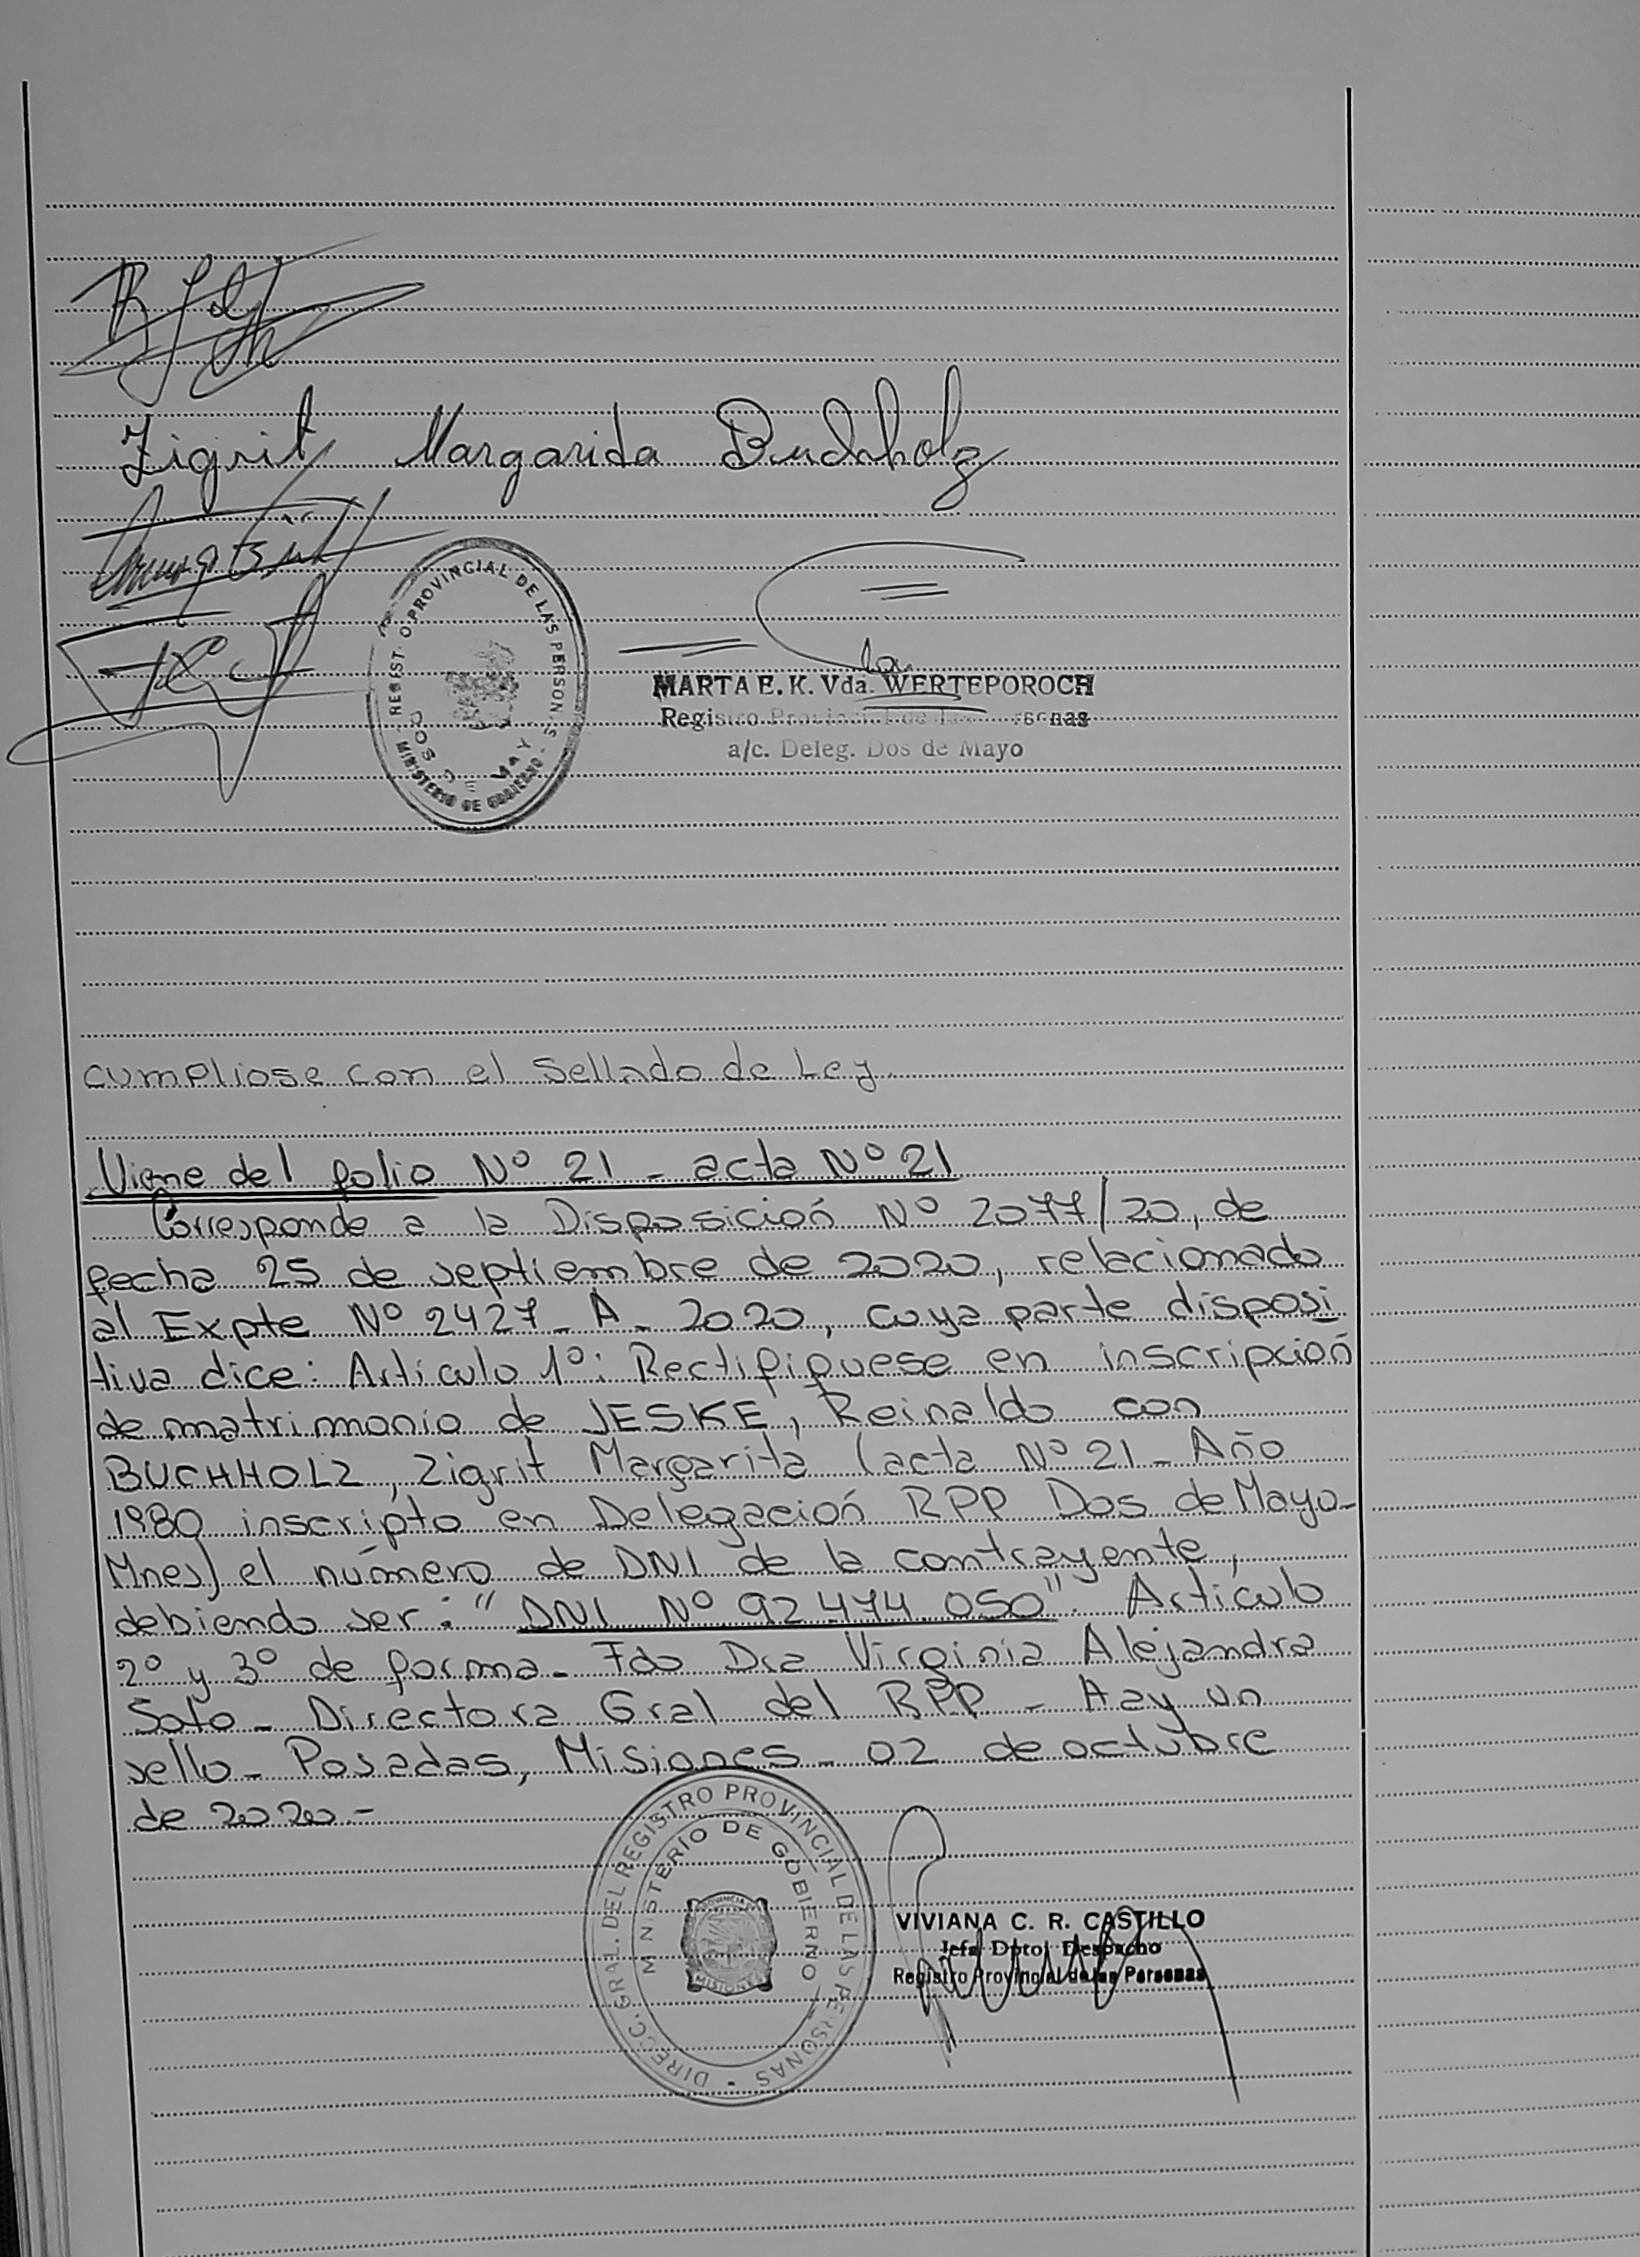 Zigrit Margarida Buchholz
REGIST. O PROVINCIAL DE LAS PERSON. S
MINISTERIO DE GOBIERNO
MARTA E. K. Vda. WERTEPOROCH
Registro Provincial de las Personas
a/c. Deleg. Dos de Mayo
cumpliose con el Sellado de Ley.
Viene del folio Nº 21 - acta Nº 21
Corresponde a la Disposición Nº 2077/20, de
fecha 25 de septiembre de 2020, relacionado
al Expte Nº 2427 - A - 2020, cuya parte disposi
tiva dice: Artículo 1º: Rectifiquese en inscripción
de matrimonio de JESKE, Reinaldo con
BUCHHOLZ, Zigrit Margarita (acta Nº 21 - Año
1980 inscripto en Delegación RPP Dos de Mayo -
Mnes) el número de DNI de la contrayente,
debiendo ser: "DNI Nº 92 474 050". Artículo
2º y 3º de forma - Fdo Dra Virginia Alejandra
Soto - Directora Gral del RPP - Hay un
sello - Posadas, Misiones - 02 de octubre
de 2020.-
DIRECC. GRAL. DEL REGISTRO PROVINCIAL DE LAS PERSONAS
MINISTERIO DE GOBIERNO
PROVINCIA
MISIONES
VIVIANA C. R. CASTILLO
Jefa Dpto. Despacho
Registro Provincial de las Personas